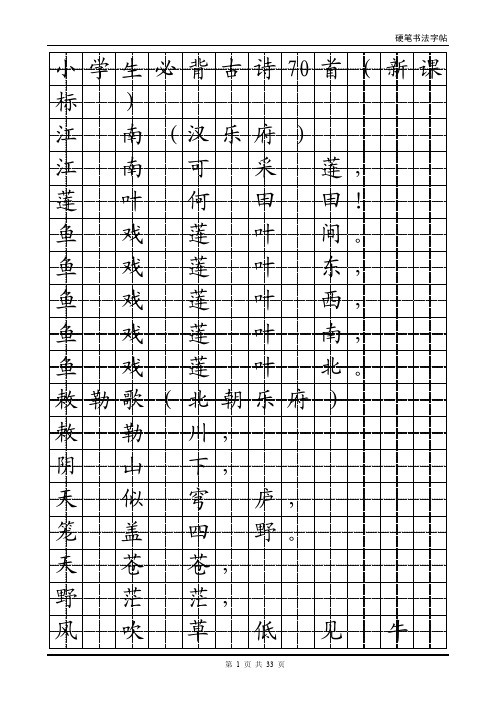 硬笔书法字帖
小学生必背古诗70首（新课
标）
江南（汉乐府）
江南可采莲，
莲叶何田田！
鱼戏莲叶间。
鱼戏莲叶东，
鱼戏莲叶西，
鱼戏莲叶南，
鱼戏莲叶北。
敕勒歌（北朝乐府）
敕勒川，
阴山下，
天似穹庐，
笼盖四野。
天苍苍，
野茫茫，
风吹草低见牛
第 1 页 共 33 页